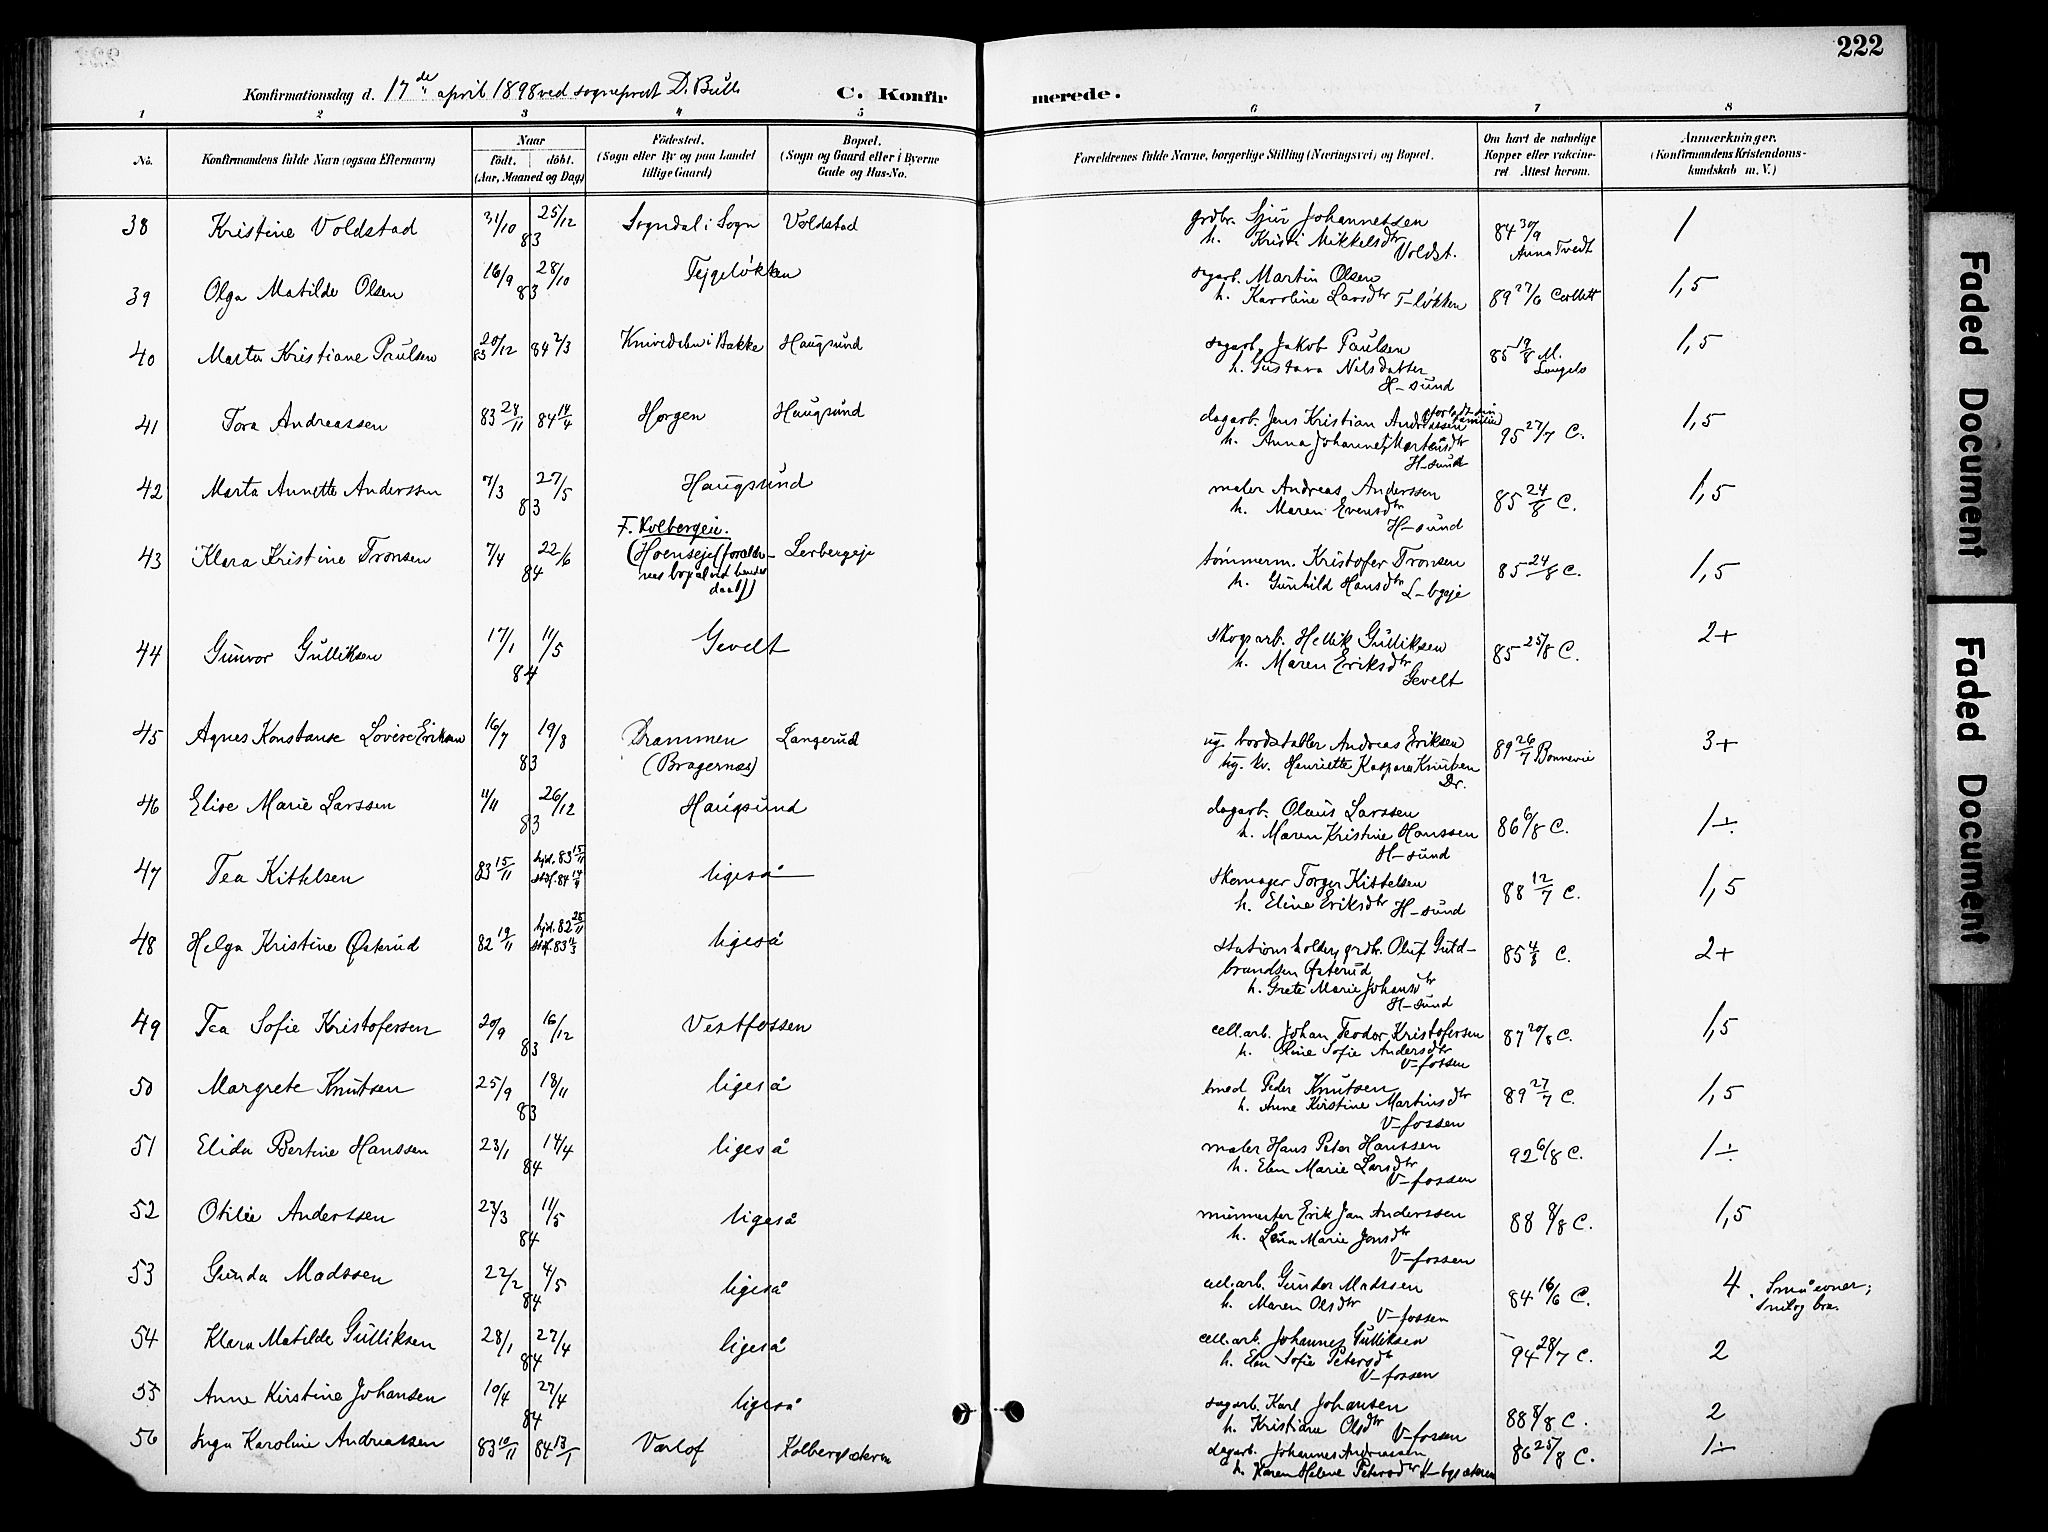 222
Konfirmationsdag d. 17de april 1898 ved sogneprest D. Bull.
C. Konfirmerede.
1 2 3 4 5 6 7 8
No. Konfirmandens fulde Navn (ogsaa Efternavn) Naar født. døbt. (Aar, Maaned og Dag) Fødested. (Sogn eller By og paa Landet tillige Gaard) Bopæl. (Sogn og Gaard eller i Byerne Gade og Hus-No. Forældrenes fulde Navne, borgerlige Stilling (Næringsvei) og Bopæl. Om havt de naturlige Kopper eller vakcineret Attest herom. Anmærkninger. (Konfirmandens Kristendomskundskab m. V.)
38 Kristine Voldstad 31/10 25/12 83 Sogndal i Sogn Voldstad grdbr. Sjur Johannessen h. Kristi Mikkelsdtr Voldst. 84 30/9 Anna Tvedt 1
39 Olga Matilde Olsen 16/9 28/10 83 Tejgeløkken sagarb. Martin Olsen h. Karoline Larsdtr T-løkken 89 27/6 Collett 1,5
40 Marta Kristiane Paulsen 83 20/12 84 2/3 Knivedalen i Bakke Haugsund sagarb. Jakob Paulsen h. Gustava Nilsdatter H-sund 85 19/8 M. 1,5
41 Tora Andreassen 83 28/11 84 14/4 Horgen Haugsund dagarb. Jens Kristian Andreassen (forladt sin familie) h. Anna Johannes Mortensdtr H-sund 95 27/7 C. 1,5
42 Marta Annette Anderssen 7/3 27/5 83 Haugsund maler Andreas Anderssen h. Maren Evensdtr H-sund 85 24/8 C. 1,5
43 Klara Kristine Tronsen 7/4 22/6 84 F. Kolbergeie. (Hoenseje (forældrenes bopæl ved hendes daab)) Lerbergeje tømmerm. Kristofer Tronsen h. Gunhild Hansdtr L-bgeje 85 24/8 C. 1,5
44 Gunvor Gulliksen 17/1 11/5 84 Gevelt skogsarb. Hellik Gulliksen h. Maren Eriksdtr Gevelt 85 25/8 C. 2+
45 Agnes Konstanse Lovise Eriksen 16/7 19/8 83 Drammen (Bragernæs) Langerud ug. bordstabler Andreas Eriksen ug. kv. Henriette Kaspara Knutsen Dr. 89 26/7 Bonnevie 3+
46 Elise Marie Larssen 11/11 26/12 83 Haugsund dagarb. Olaus Larssen h. Maren Kristine Hanssen H-sund 86 6/8 C. 1÷
47 Tea Kittelsen 83 15/11 hjd. 83 15/11 stdf. 84 14/4 ligeså skomager Torger Kittelsen h. Eline Eriksdtr H-sund 88 12/7 C. 1,5
48 Helga Kristine Østerud 82 19/11 hjd. 82 25/11 stdf. 83 11/3 ligeså stationsholder, grdbr. Oluf Guldbrandsen Østerud h. Grete Marie Johansdtr H-sund 85 4/8 C. 2+
49 Tea Sofie Kristofersen 20/9 16/12 83 Vestfossen cell.arb. Johan Teodor Kristofersen h. Oline Sofie Andersdtr V-fossen 87 20/8 C. 1,5
50 Margrete Knutsen 25/9 18/11 83 ligeså smed Peder Knutsen h. Anne Kirstine Martinsdtr V-fossen 89 27/7 C. 1,5
51 Elida Bertine Hanssen 23/1 14/4 84 ligeså maler Hans Peter Hanssen h. Elen Marie Larsdtr V-fossen 92 6/8 C. 1÷
52 Otilie Anderssen 27/3 11/5 84 ligeså murmester Erik Jan Anderssen h. Lena Marie Jonsdtr V-fossen 88 8/8 C. 1,5
53 Gunda Madssen 22/2 4/5 84 ligeså cell.arb. Gunder Madssen h. Maren Olsdtr V-fossen 84 16/6 C. 4. Små evner; snil og bra.
54 Klara Matilde Gulliksen 28/1 27/4 84 ligeså cell.arb. Johannes Gulliksen h. Elen Sofie Petersdtr V-fossen 94 28/7 C. 2
55 Anne Kirstine Johansen 10/4 27/4 84 ligeså sagarb. Karl Johansen h. Kristiane Olsdtr V-fossen 88 8/8 C. 2
56 Inga Karoline Andreassen 83 10/11 84 13/1 Varlof Kolbergsækeren dagarb. Johannes Andreassen h. Karen Helene Petersdtr K-bgsækeren 86 25/8 C. 1÷
Faded Document
Faded Document